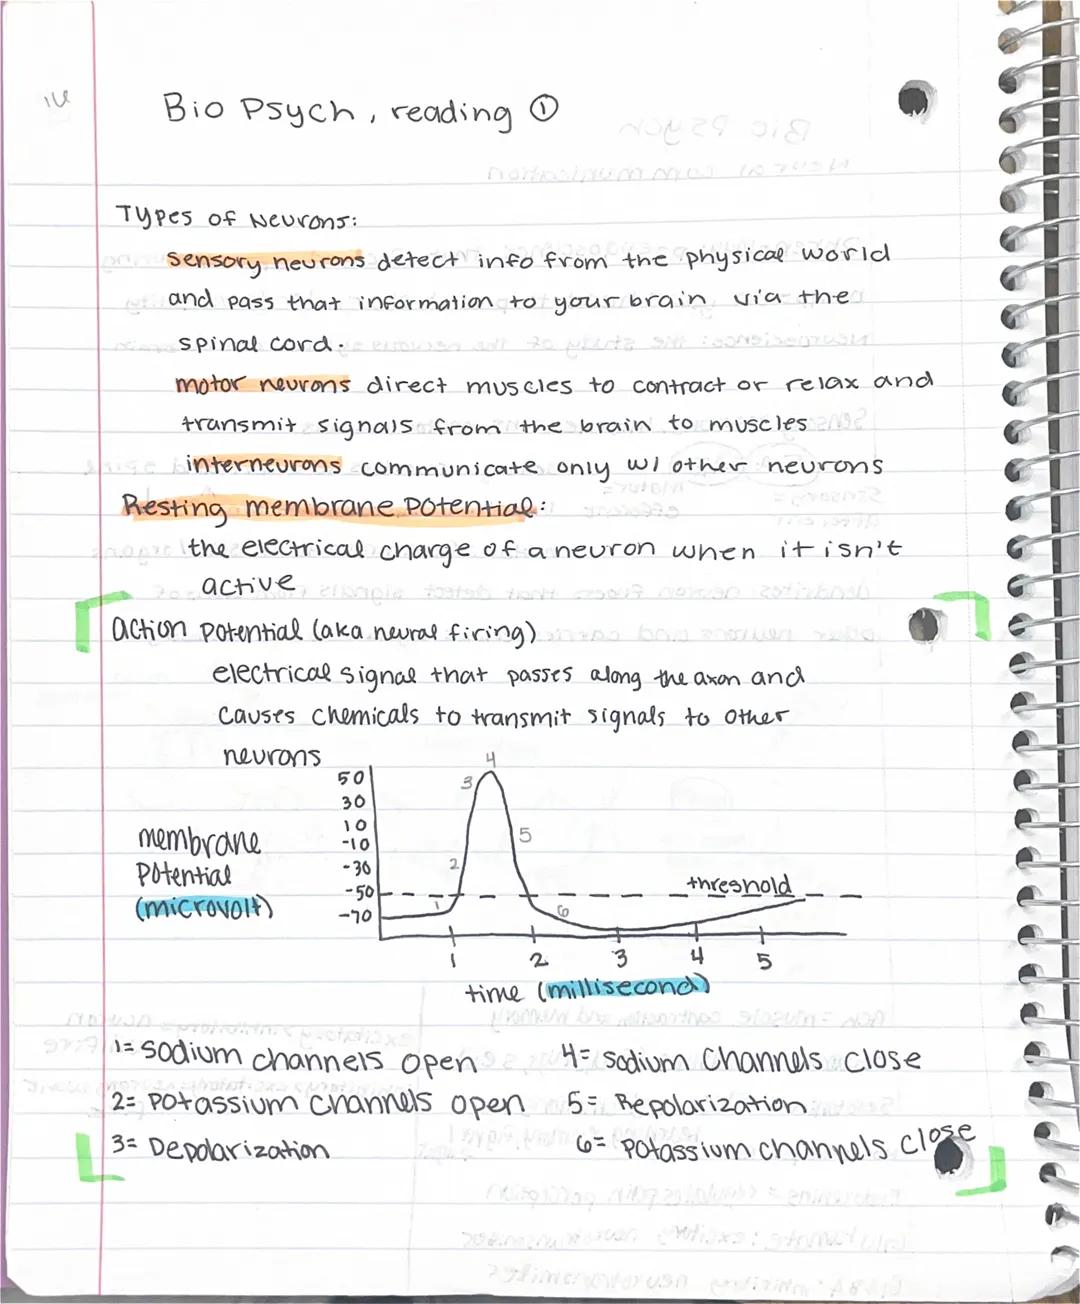 Bio Psych, reading ①
Types of Neurons:
sensory neurons detect info from the physical world
and pass that information to your brain via the
spinal cord.
motor neurons direct muscles to contract or relax and
transmit signals from the brain to muscles
interneurons communicate only w/ other neurons
Resting membrane potential:
the electrical charge of a neuron when it isn't
active
action potential (aka neural firing)
electrical signal that passes along the axon and
causes chemicals to transmit signals to other
neurons
membrane
potential
(microvolt)
50
30
10
-10
-30
-50
-70
1
2
3
4
5
6
threshold
1 2 3 4 5
time (millisecond)
1= sodium channels open
2= potassium channels open
3= Depolarization
4= sodium channels close
5= Repolarization
6= potassium channels close